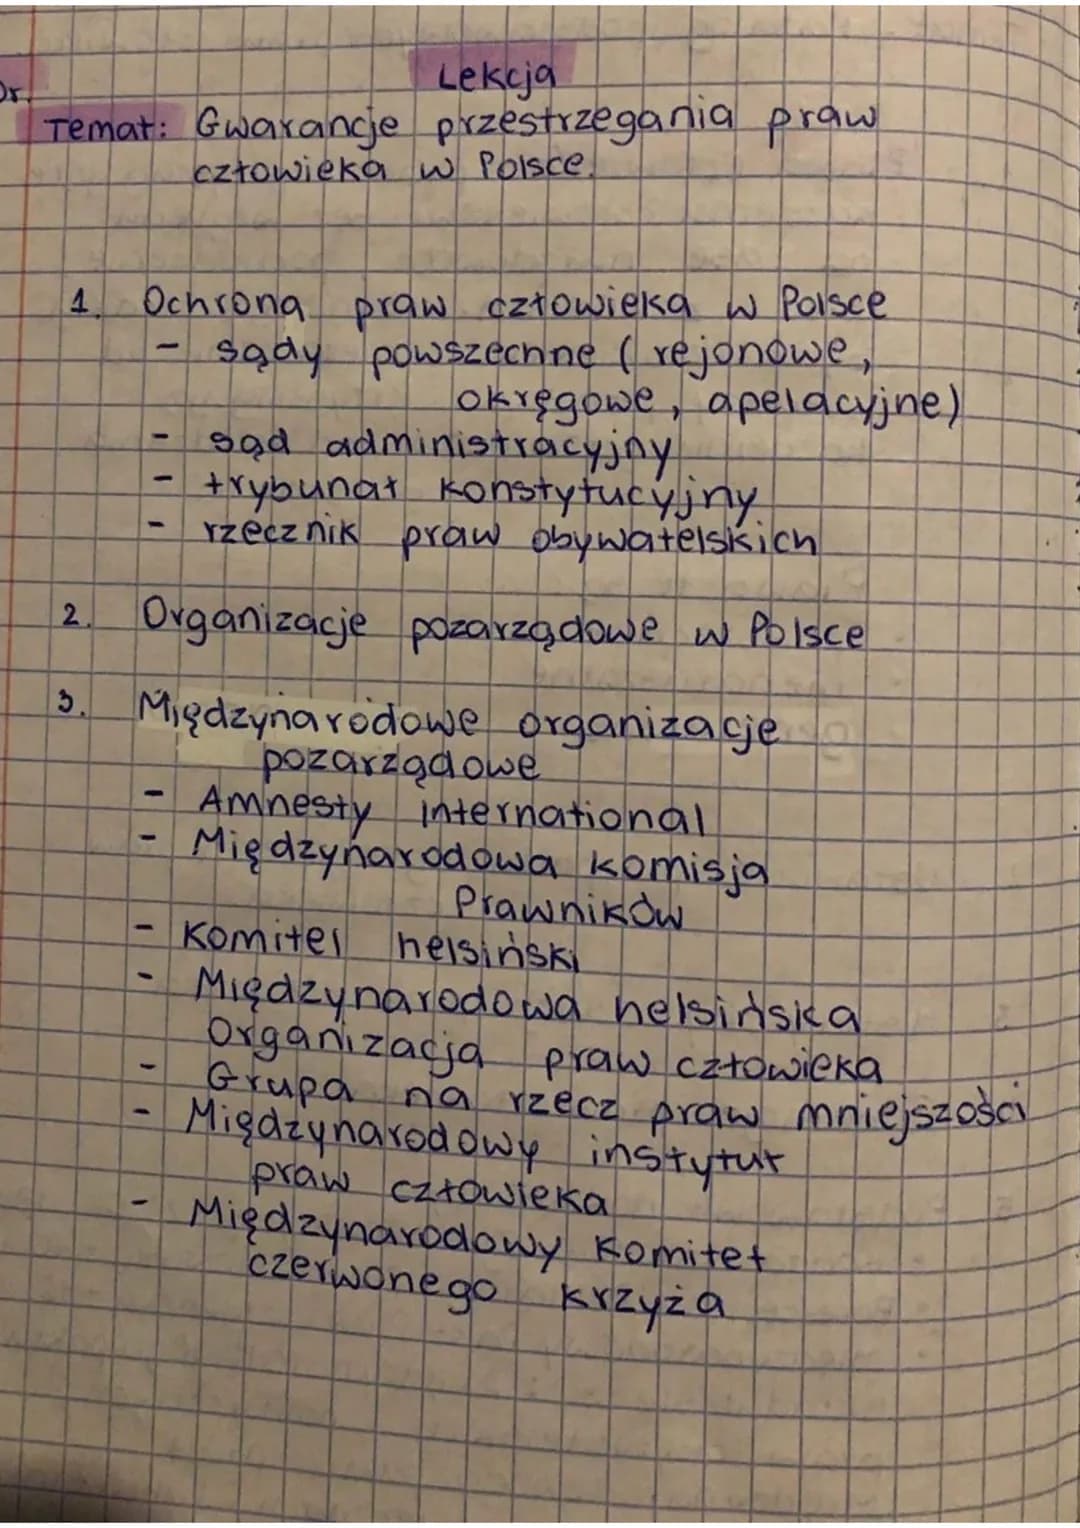 Lekcja
Dr.
Temat: Gwarancje przestrzegania praw
człowieka w Polsce.
1. Ochrona praw człowieka w Polsce
- sądy powszechne (rejonowe,
okręgowe, apelacyjne)
- sąd administracyjny
- trybunał konstytucyjny
- rzecznik praw obywatelskich
2. Organizacje pozarządowe w Polsce
3. Międzynarodowe organizacje
pozarządowe
- Amnesty international
- Międzynarodowa komisja
Prawników
- Komitet helsiński
- Międzynarodowa helsińska
Organizacja praw człowieka
- Grupa na rzecz praw mniejszości
- Międzynarodowy instytut
praw człowieka
- Międzynarodowy Komitet
czerwonego krzyża